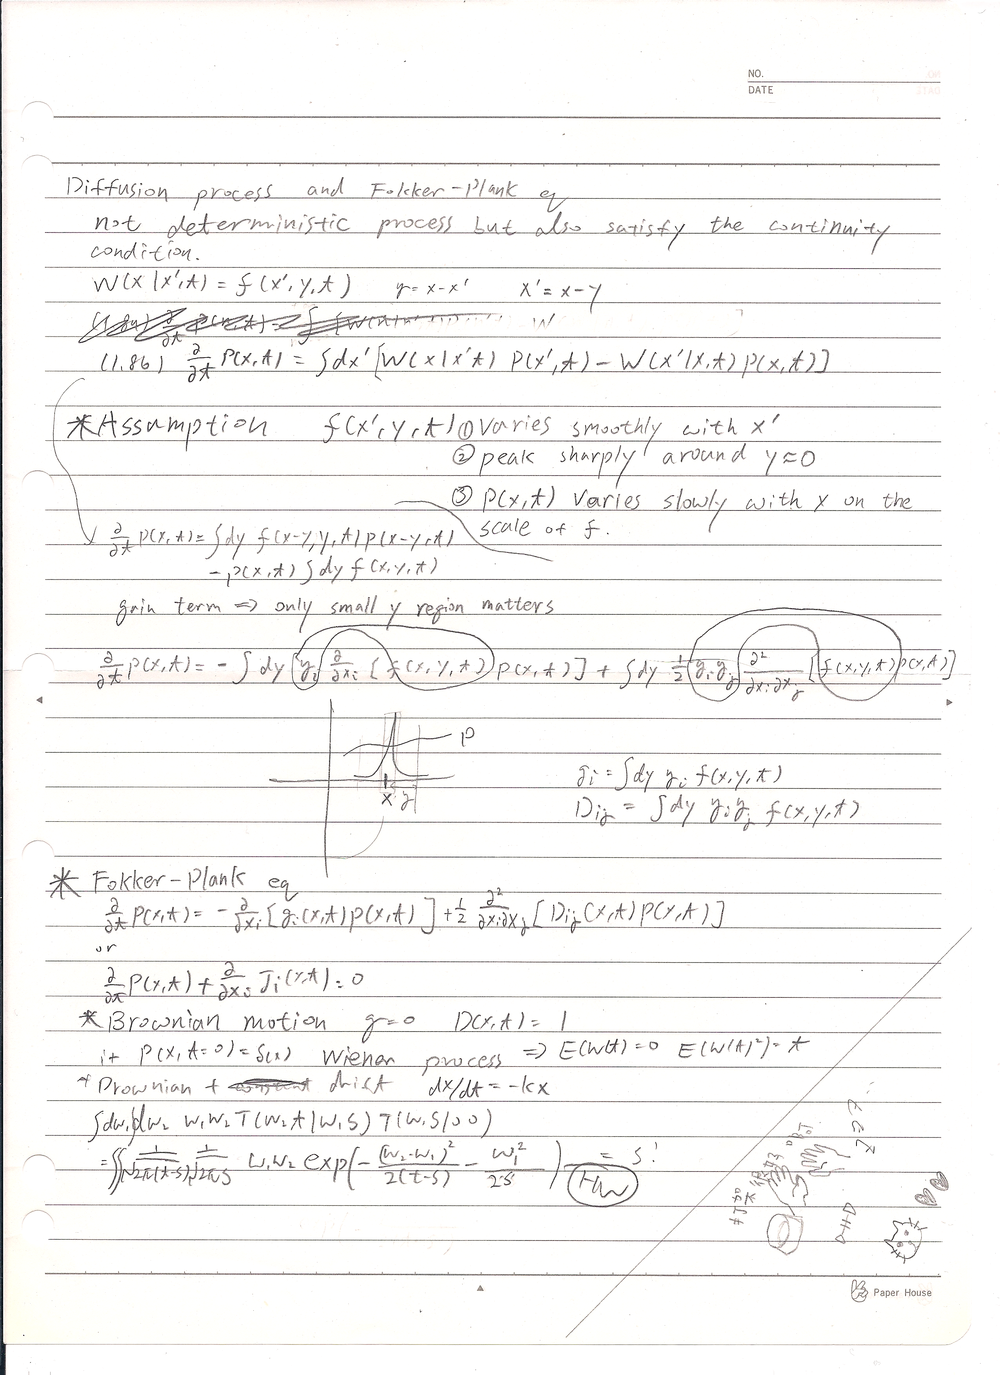 NO.
DATE
Diffusion process and Fokker-Plank eq
not deterministic process but also satisfy the continuity
condition.
W(x|x',t) = f(x',y,t) y=x-x' x'=x-y
(1.86) ∂/∂t P(x,t) = ∫dx' [W(x|x't) P(x',t) - W(x'|x,t) p(x,t)]
*Assumption f(x',y,t) ① varies smoothly with x'
② peak sharply around y≈0
③ P(x,t) varies slowly with x on the
scale of f.
∂/∂t P(x,t) = ∫dy f(x-y,y,t) p(x-y,t)
-p(x,t) ∫dy f(x,y,t)
gain term => only small y region matters
∂/∂t p(x,t) = -∫dy y_i ∂/∂x_i [f(x,y,t) p(x,t)] + ∫dy 1/2 y_i y_j ∂²/∂x_i∂x_j [f(x,y,t) p(x,t)]
P
x y
g_i = ∫dy y_i f(x,y,t)
D_ij = ∫dy y_i y_j f(x,y,t)
* Fokker-Plank eq
∂/∂t P(x,t) = -∂/∂x_i [g_i(x,t) p(x,t)] + 1/2 ∂²/∂x_i∂x_j [D_ij(x,t) P(x,t)]
or
∂/∂t P(x,t) + ∂/∂x_i J_i(x,t) = 0
*Brownian motion g=0 D(x,t) = 1
if P(x,t=0)=δ(x) Wiener process => E(W(t))=0 E(W(t)²)=t
* Brownian + drift dx/dt = -kx
∫dw₁dw₂ w₁w₂ T(w₂t|w₁s) T(w₁s|00)
= ∬ 1/√2π(t-s) 1/√2πs w₁w₂ exp(-(w₂-w₁)²/2(t-s) - w₁²/2s) = s!
HW
Paper House